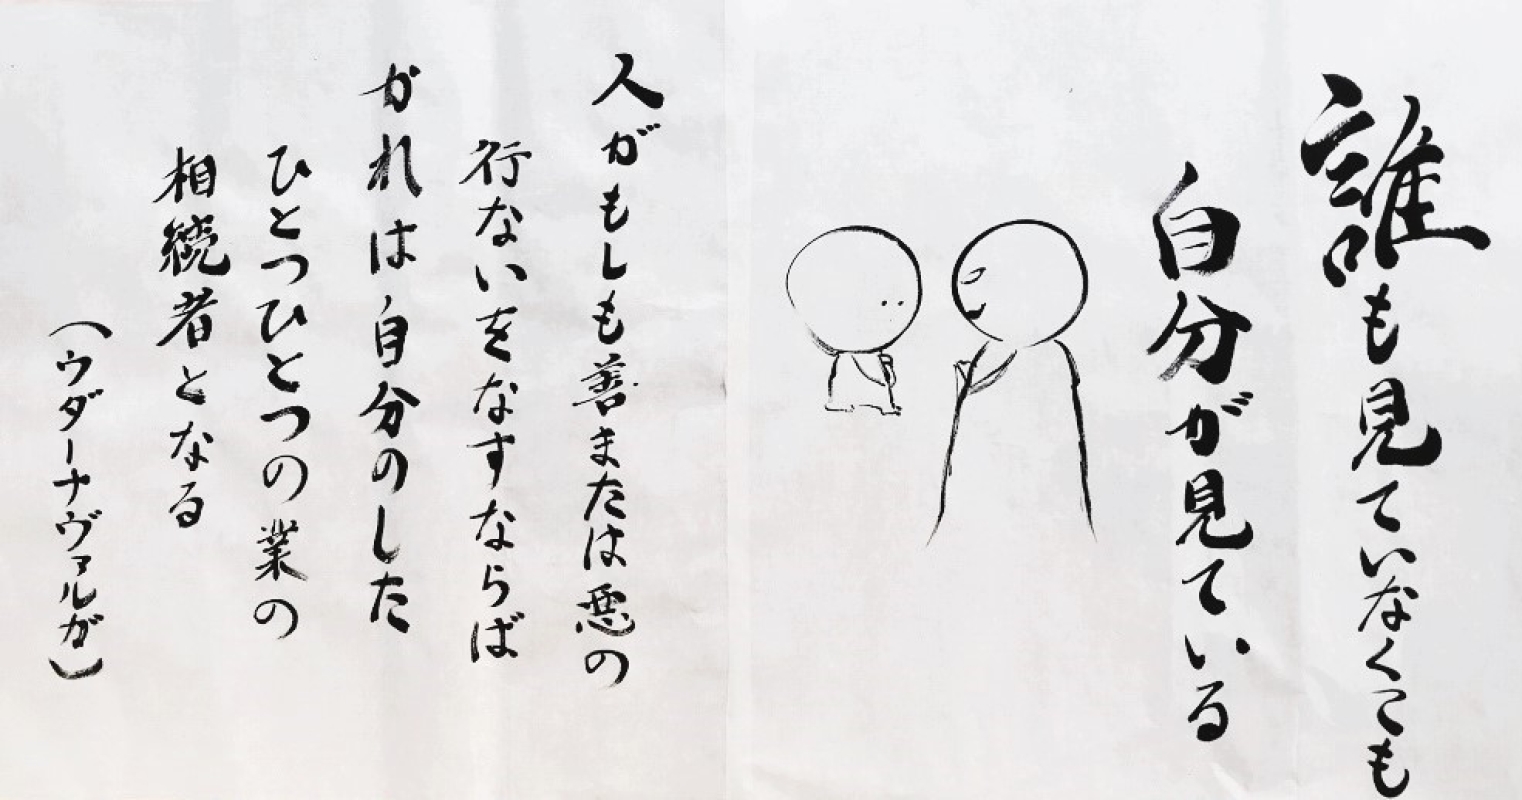 誰も見ていなくこも
自分が見ている
人がもしも善または悪の
行ないをなすならば
かれは自分のした
ひとつひとつの業の
相続者となる
（ウダーナヴァルガ）